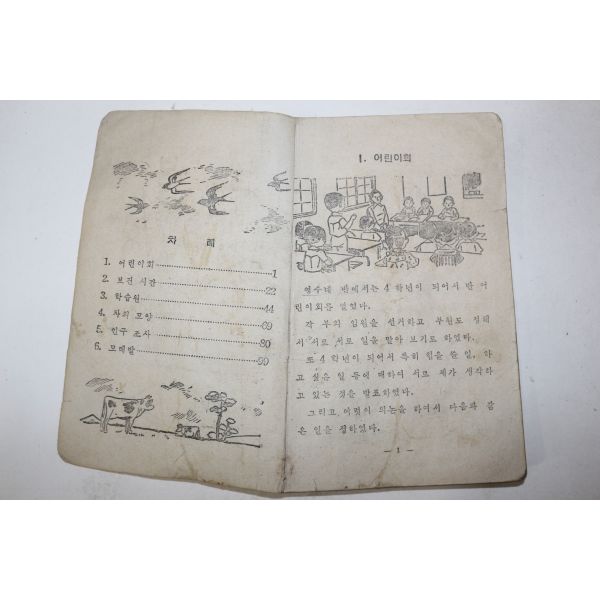 차 례
1. 어린이회 1
2. 보건 시간 22
3. 학습원 44
4. 차의 모양 69
5. 인구 조사 80
6. 모래밭 99
1. 어린이회
영수네 반에서는 4 학년이 되어서 반 어
린이회를 열었다.
각 부의 임원을 선거하고 부원도 정해
서 서로 서로 일을 맡아 보기로 하였다.
또 4 학년이 되어서 특히 힘을 쓸 일, 하
고 싶은 일 등에 대하여 서로 제가 생각하
고 있는 것을 발표하였다.
그리고 이렇게 의논을 하여서 다음과 같
은 일을 정하였다.
— 1 —